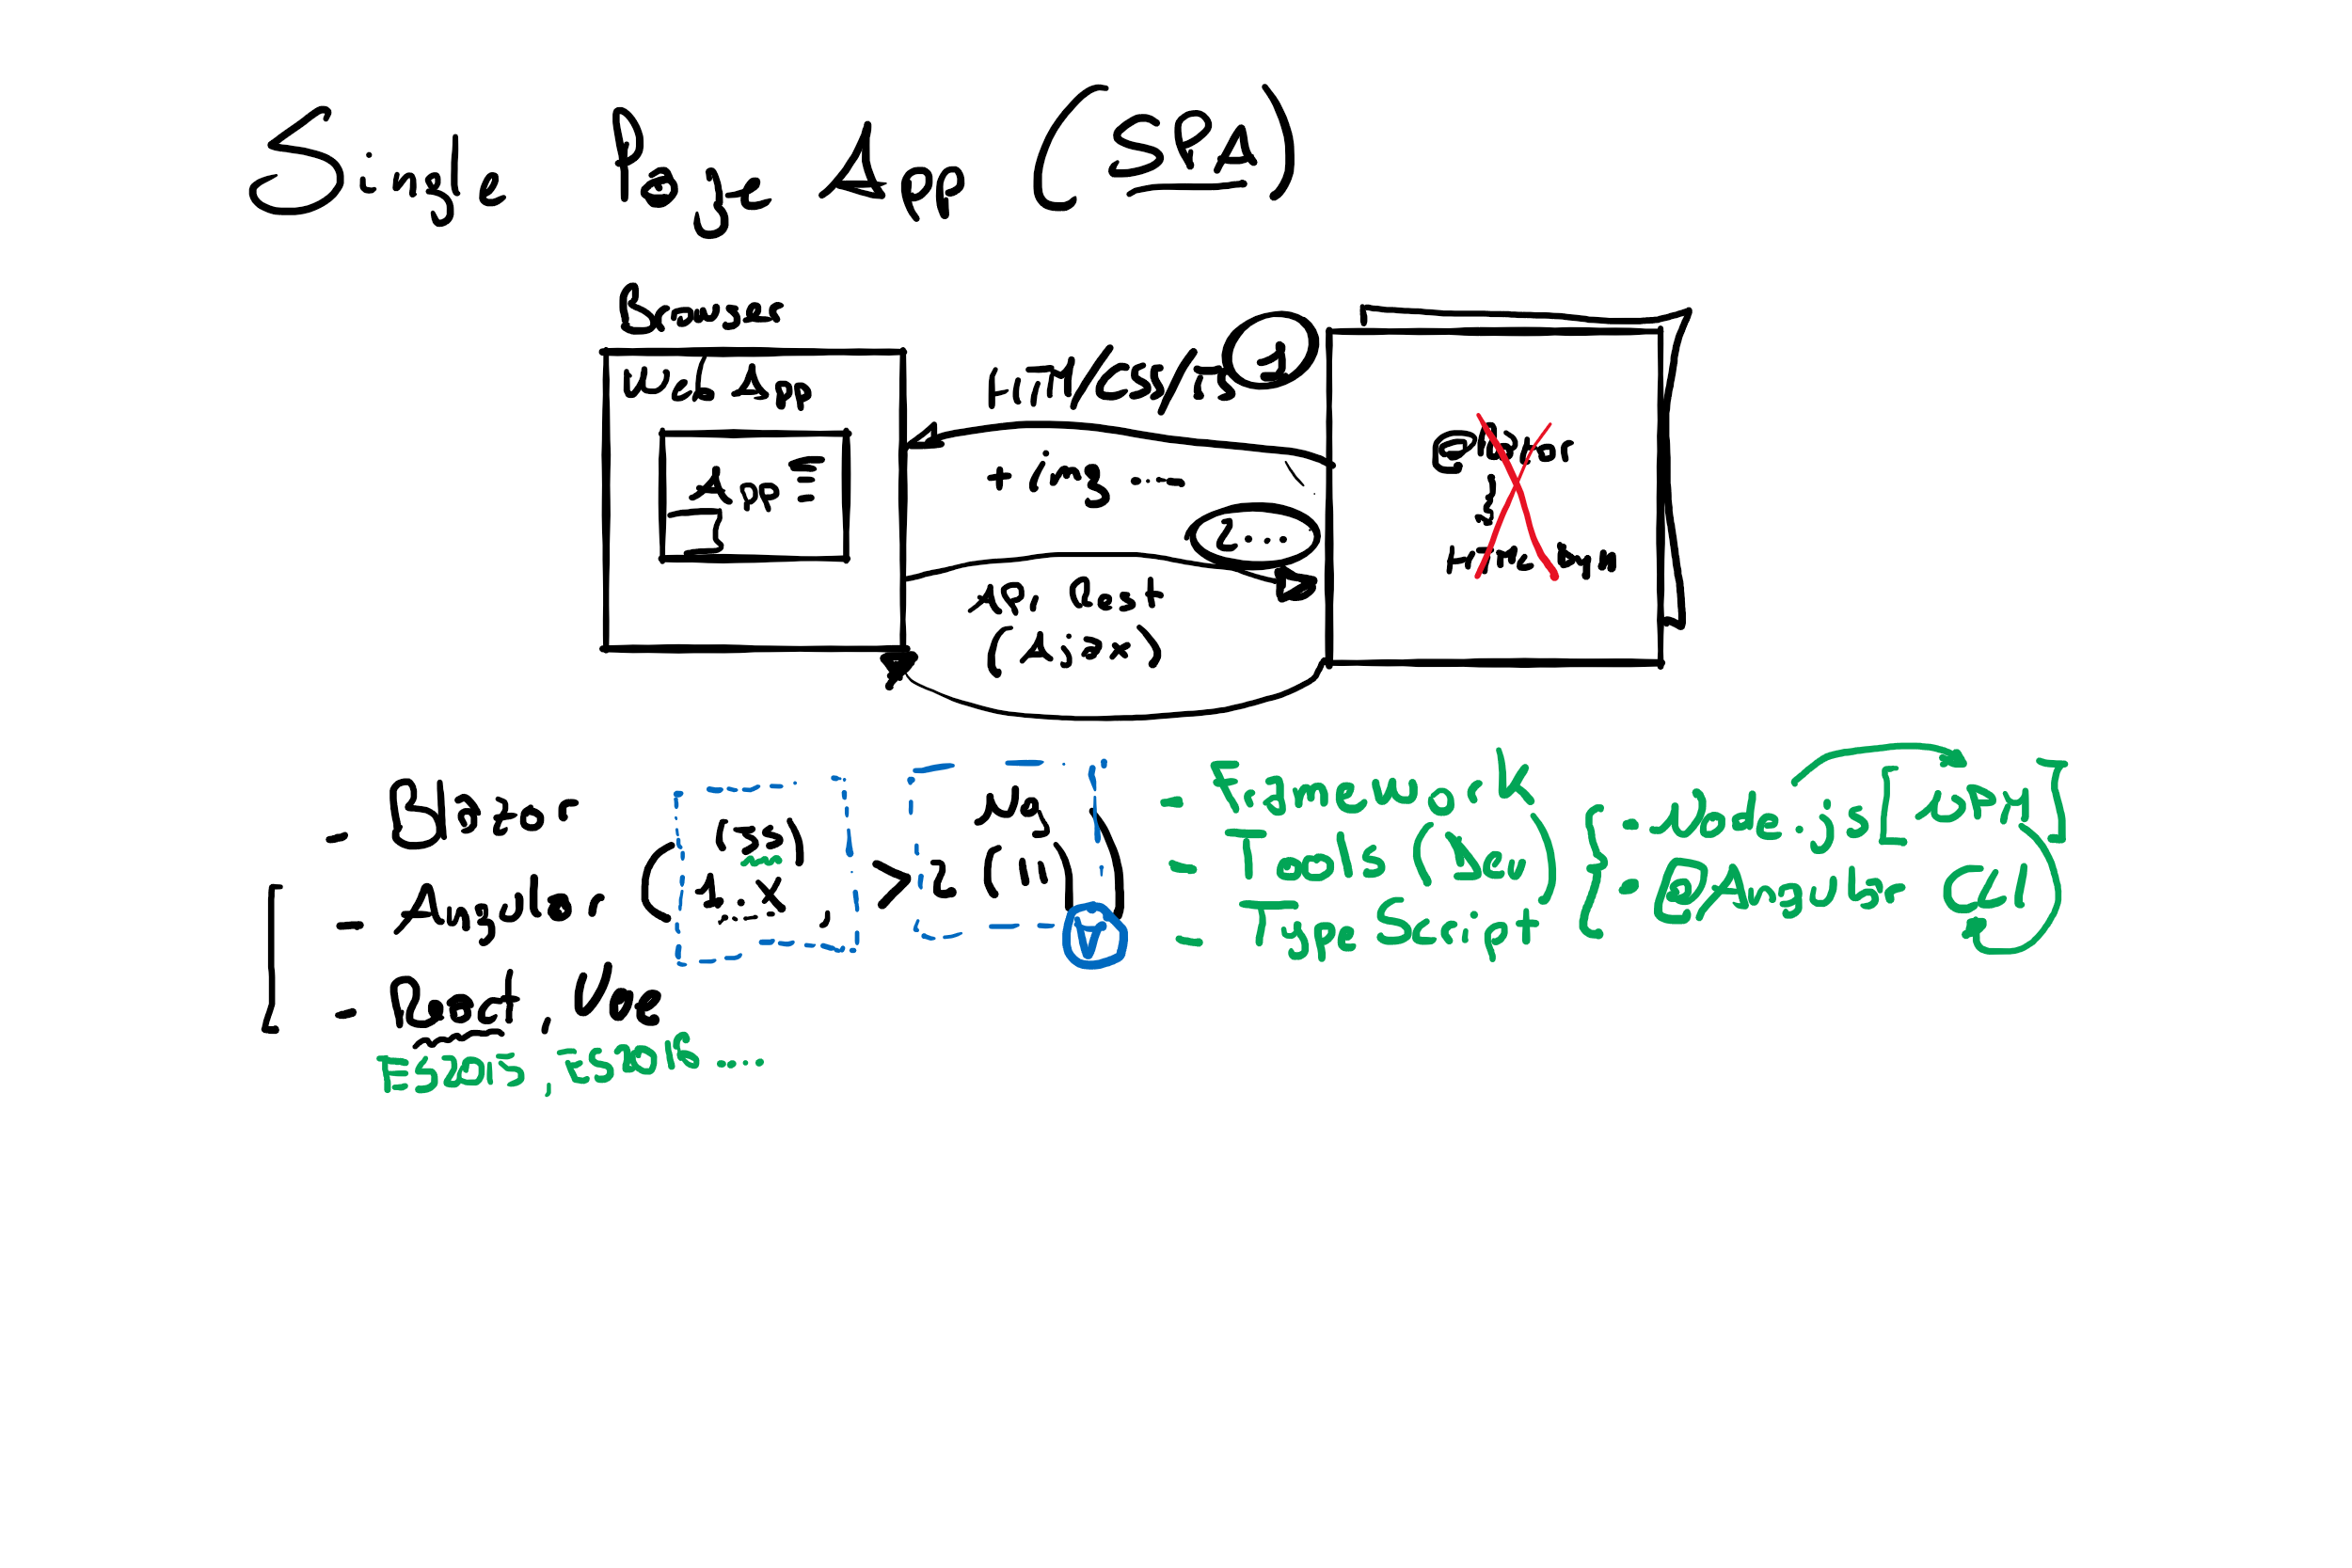 Single Page App (SPA)
Browser
Web App
App
HTML/CSS/JS 1
+ img ....
2...
API Rest
(Ajax)
HTML Dyn
- Blazor
- Angular (
(JS)
1.x ,
>2 (11)
Ng
- React, Vue
ES2015, ES2016 ....
- Framework
- Tools (Dev)
- TypeScript
- Node.js [NPM]
- @Angular Cli